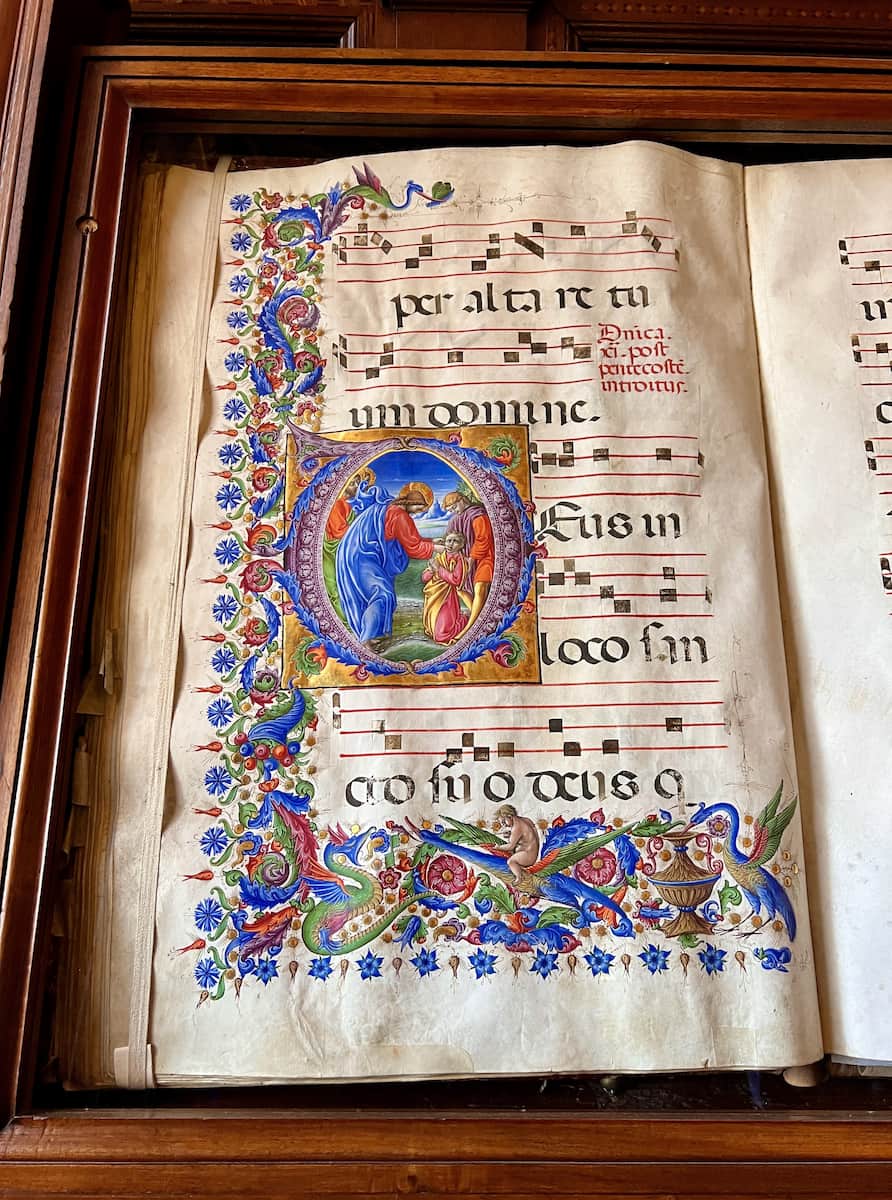 per alta re tu
Dnica.
xi. post
pentecostē.
introitus.
um domine.
Eus in
loco san
cto su o deus q